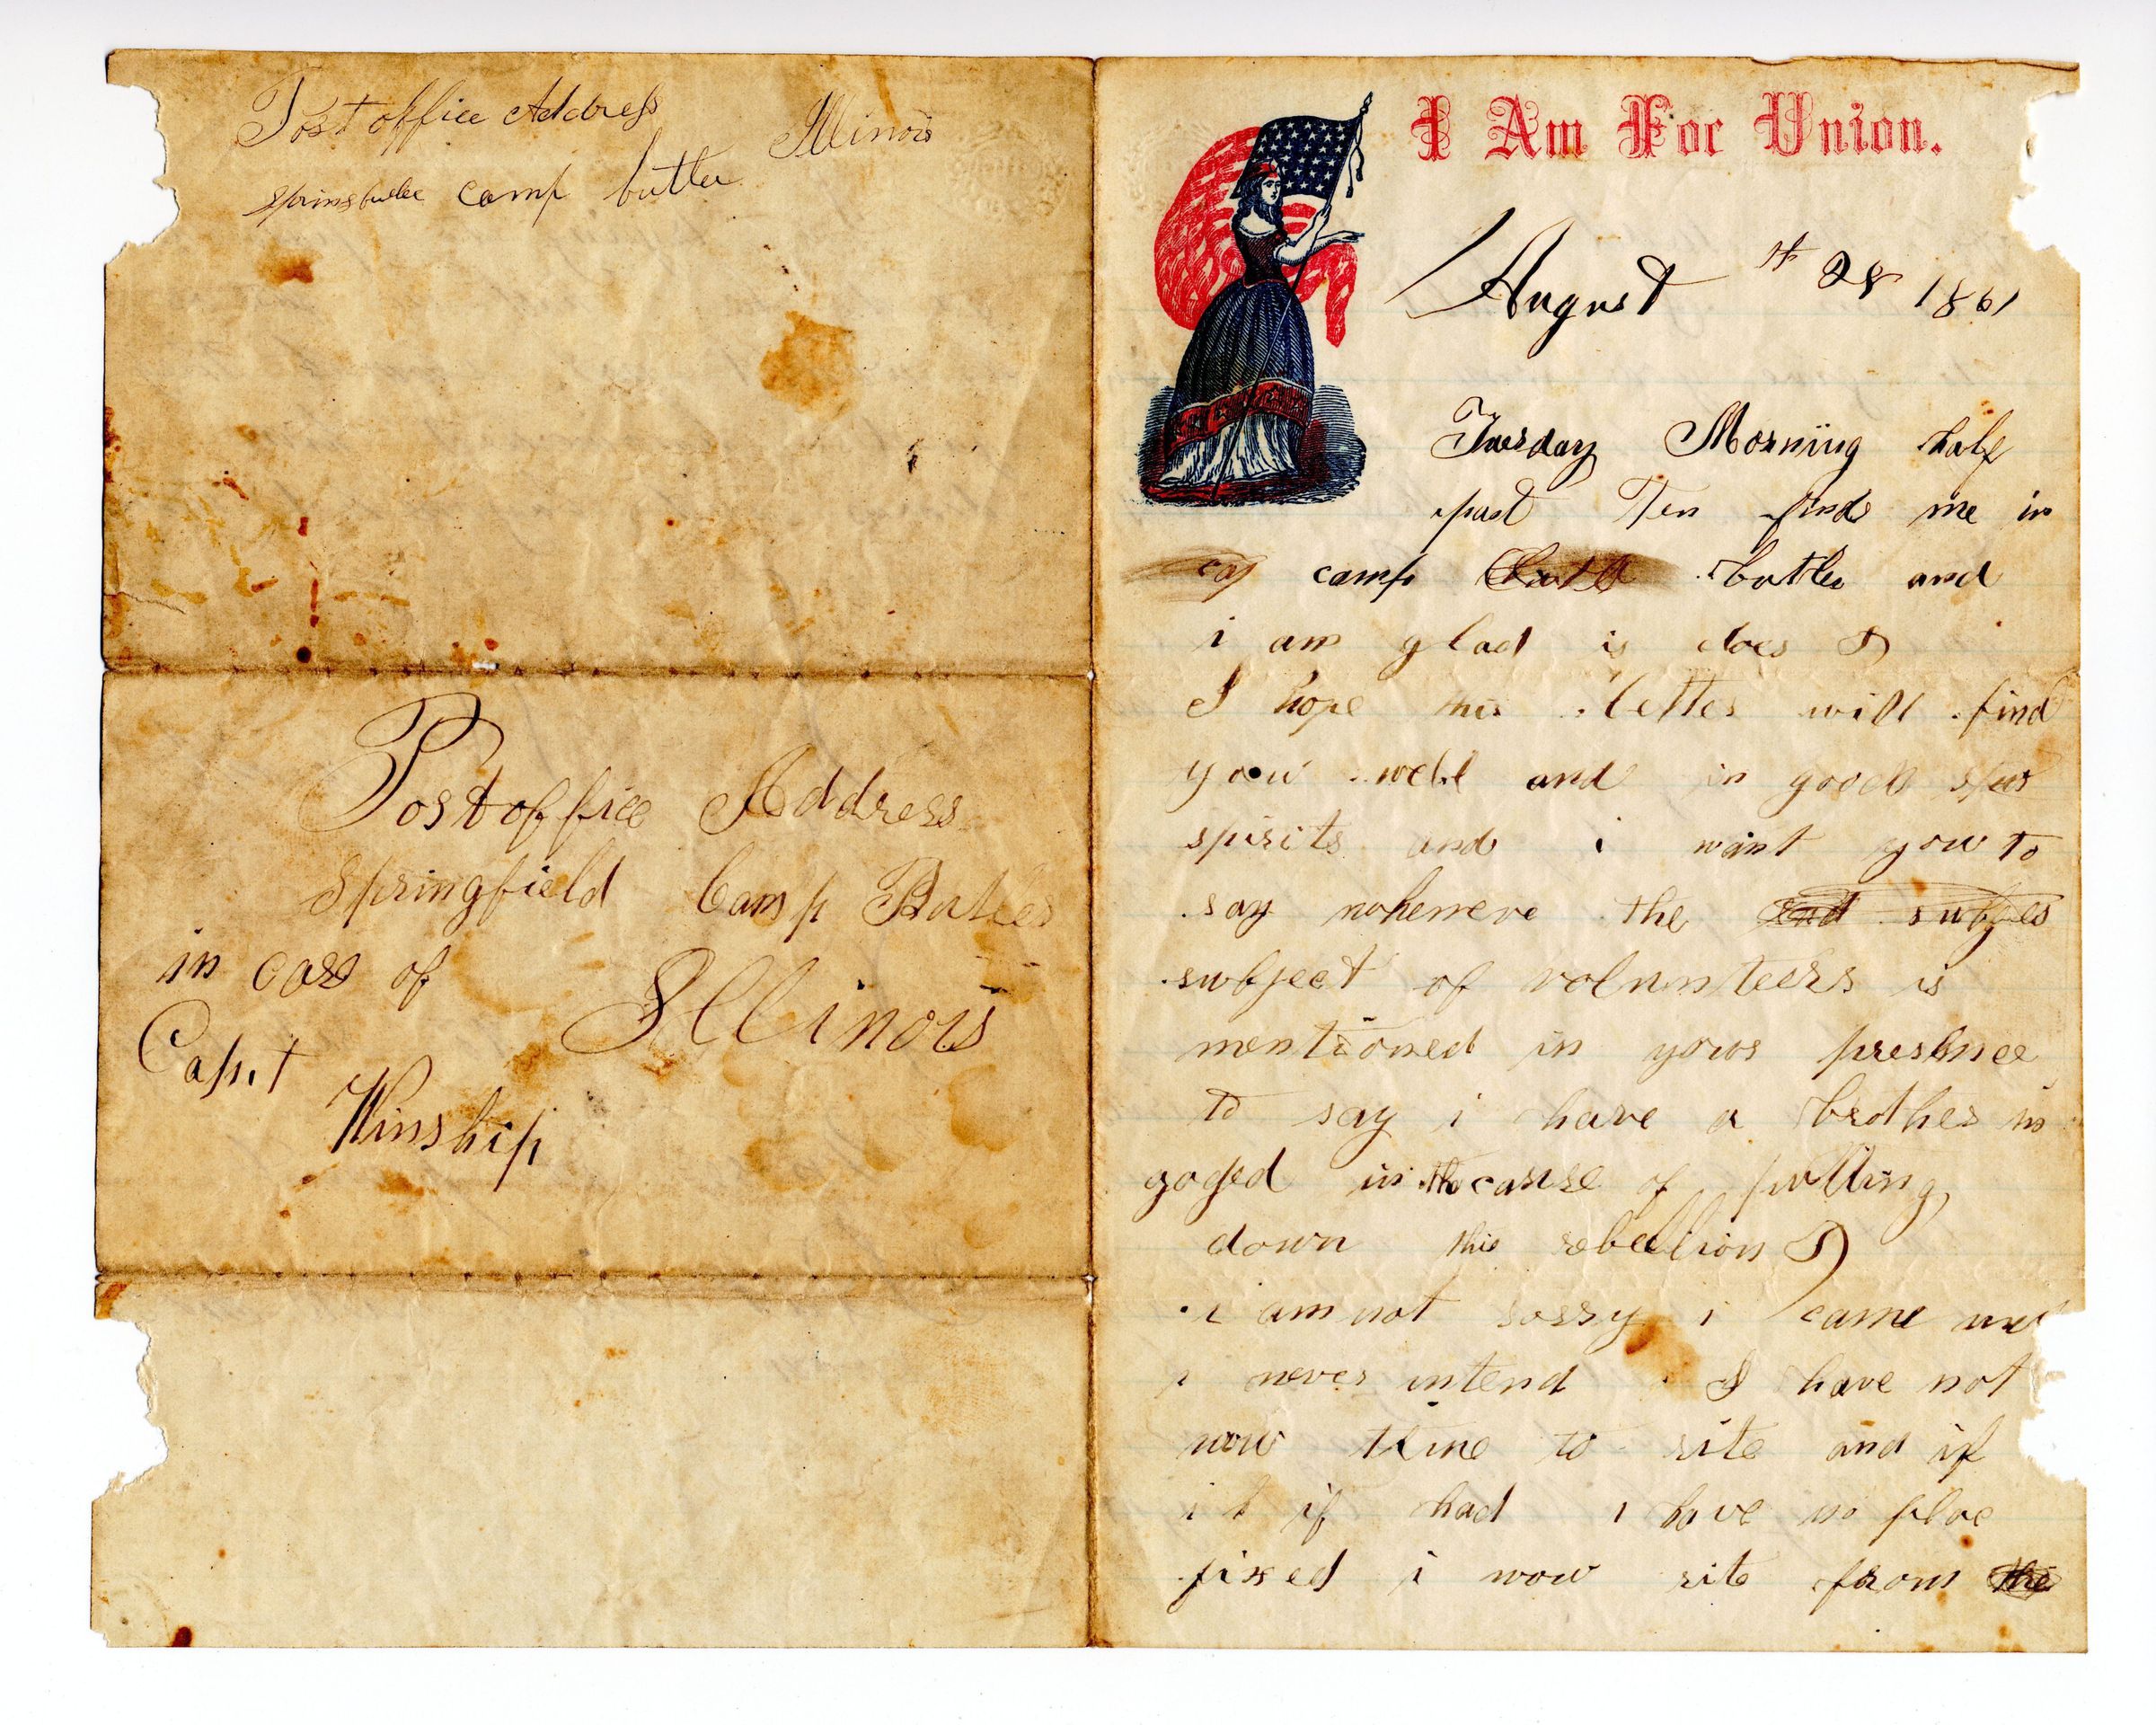 Post office Address
Illinois
camp butler
Postoffice Address
Springfield Camp Butler
in care of
Illinois
Capt
Winship
I Am For Union.
August 28 1861
Tuesday Morning half
past Ten finds me in
camp butler and
i am glad is does
I hope this letter will find
you well and in good
spirits and i want yow to
say whenever the
subject of volunteers is
mentioned in yowr presence
to say i have a brother in
gaged in the cause of putting
down this rebellion
i am not sorry i came and
i never intend I have not
now time to rite and if
it if had i have no plac
fixed i now rite from the